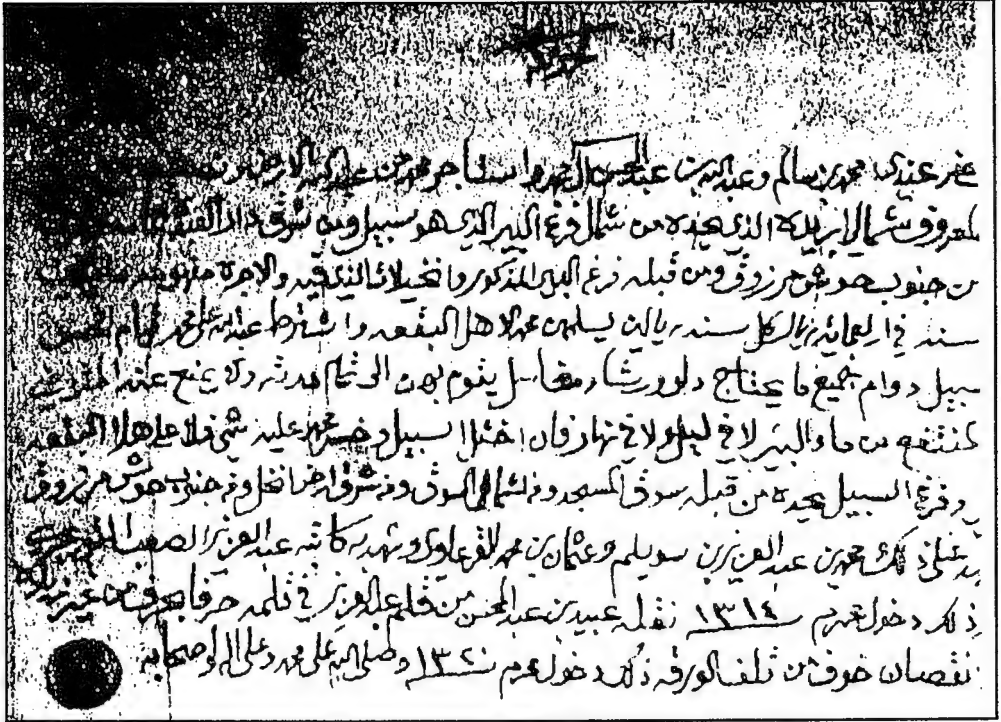 الحمد لله
حضر عندي محمد بن سالم وعبدالله بن عبدالمحسن واستأجر محمد من عبدالله الارض
المعروف شمال البريده الذي يحده من شمال فرغ البير الذي هو سبيل ومن شرق دار
من جنوب حوش مرزوق ومن قبله فرغ البير المذكور وانخيلات الذي فيه والاجرة
سنه في اربعمائة ريال كل سنه ريالين يسلمهن محمد لاهل البقعه واشترط عبدالله على محمد
سبيل دوام جميع ما يحتاج دلو ورشا يقوم بهن الى تمام مدته ولا يمنع عنه
لمنتفع من ماء البير لا في ليل ولا في نهار فان اختل السبيل وخسر محمد عليه شي فلا على هل البقعه
وفرغ السبيل يحده من قبله سوق المسجد ومن شمال السوق ومن شرق ارض انخل ومن جنوب حوش مرزوق
شهد على ذلك محمد بن عبدالعزيز بن سويلم وعثمان بن محمد وشهد به كاتبه عبدالعزيز الصعب
ذلك دخول محرم سنة ١٣١٤ نقله عبيد بن عبدالمحسن من قلم عبدالعزيز في ثلمه حرفا بحرف من غير
نقصان خوف من تلف الورقه ذلك دخول محرم سنة ١٣٢٠ وصلى الله على محمد وعلى اله واصحابه